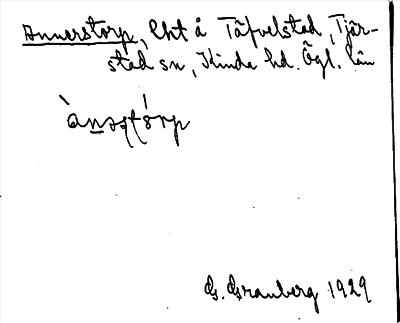 Annerstorp, lht å Täfvelstad, Tjär-
stad sn, Kinda hd. Ögl. län
G. Granberg 1929